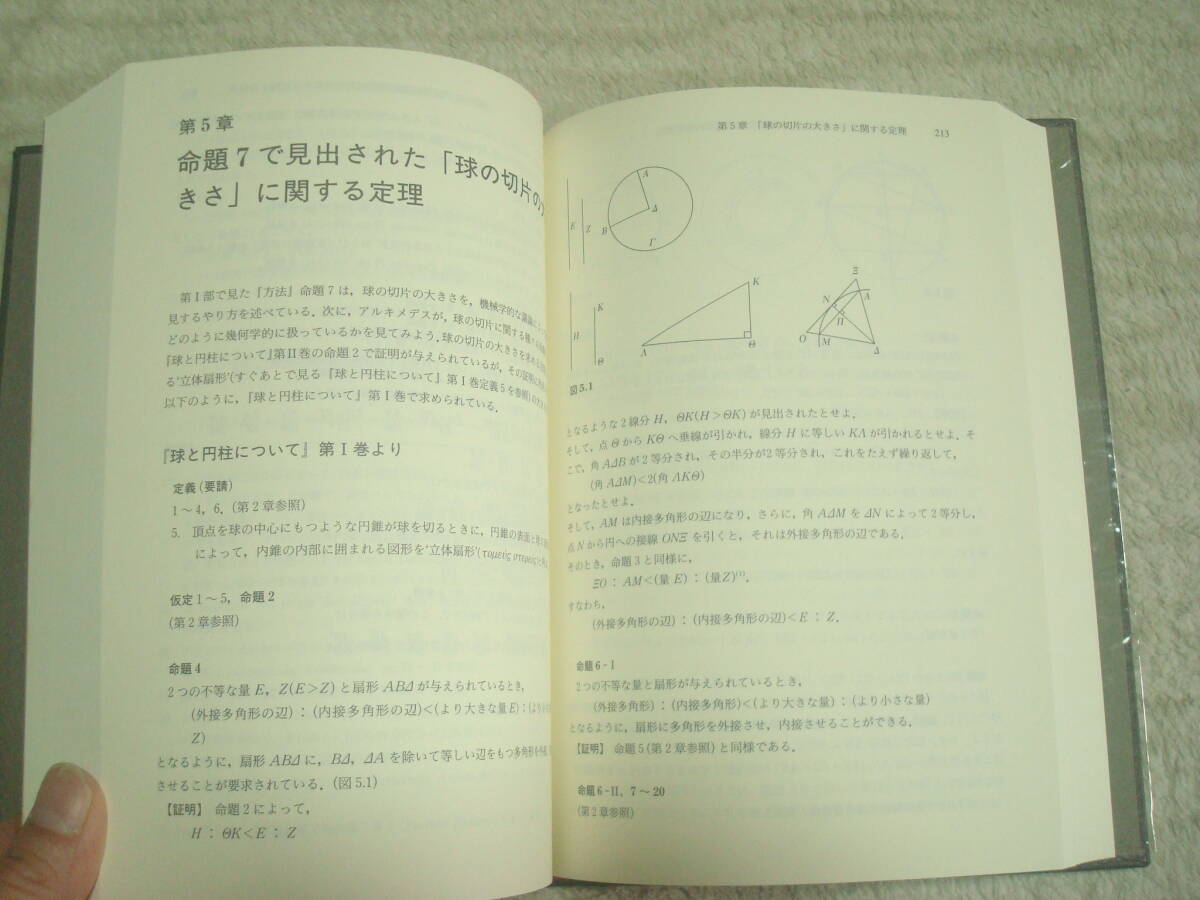 第5章
命題7で見出された「球の切片の
きさ」に関する定理
第I部で見た『方法』命題7は,球の切片の大きさを,機械学的な
見するやり方を述べている.次に,アルキメデスが,球の切片に関する
どのように幾何学的に扱っているかを見てみよう.球の切片の大きさを
『球と円柱について』第II巻の命題2で証明が与えられているが,その証明に
る‘立体扇形’(すぐあとで見る『球と円柱について』第I巻定義5を参照)の大き
以下のように,『球と円柱について』第I巻で求められている.
『球と円柱について』第I巻より
定義(要請)
1～4,6.(第2章参照)
5. 頂点を球の中心にもつような円錐が球を切るときに,円錐の表面と
によって,内錐の内部に囲まれる図形を‘立体扇形’(τομεὺς στερεός)
仮定1～5,命題2
(第2章参照)
命題4
2つの不等な量E,Z(E>Z)と扇形ΑΒΔが与えられているとき,
(外接多角形の辺):(内接多角形の辺)<(より大きな量E):(より
Z)
となるように,扇形ΑΒΔに,ΒΔ,ΔΑを除いて等しい辺をもつ多角形を
させることが要求されている.(図5.1)
【証明】 命題2によって,
H:ΘK<E:Z
第5章 「球の切片の大きさ」に関する定理 213
E Z Α Β Δ Γ
H K Θ
Λ K Θ
Ξ N Α H O M Δ
図5.1
となるような2線分H,ΘK(H>ΘK)が見出されたとせよ.
そして,点ΘからKΘへ垂線が引かれ,線分Hに等しいKΛが引かれるとせよ.そ
こで,角ΑΔΒが2等分され,その半分が2等分され,これをたえず繰り返して,
(角ΑΔM)<2(角ΛKΘ)
となったとせよ.
そして,AMは内接多角形の辺になり,さらに,角ΑΔMをΔNによって2等分し,
点Nから円への接線ONΞを引くと,それは外接多角形の辺である.
そのとき,命題3と同様に,
ΞO:AM<(量E):(量Z)⁽¹⁾.
すなわち,
(外接多角形の辺):(内接多角形の辺)<E:Z.
命題6-I
2つの不等な量と扇形が与えられているとき,
(外接多角形):(内接多角形)<(より大きな量):(より小さな量)
となるように,扇形に多角形を外接させ,内接させることができる.
【証明】 命題5(第2章参照)と同様である.
命題6-II,7～20
(第2章参照)